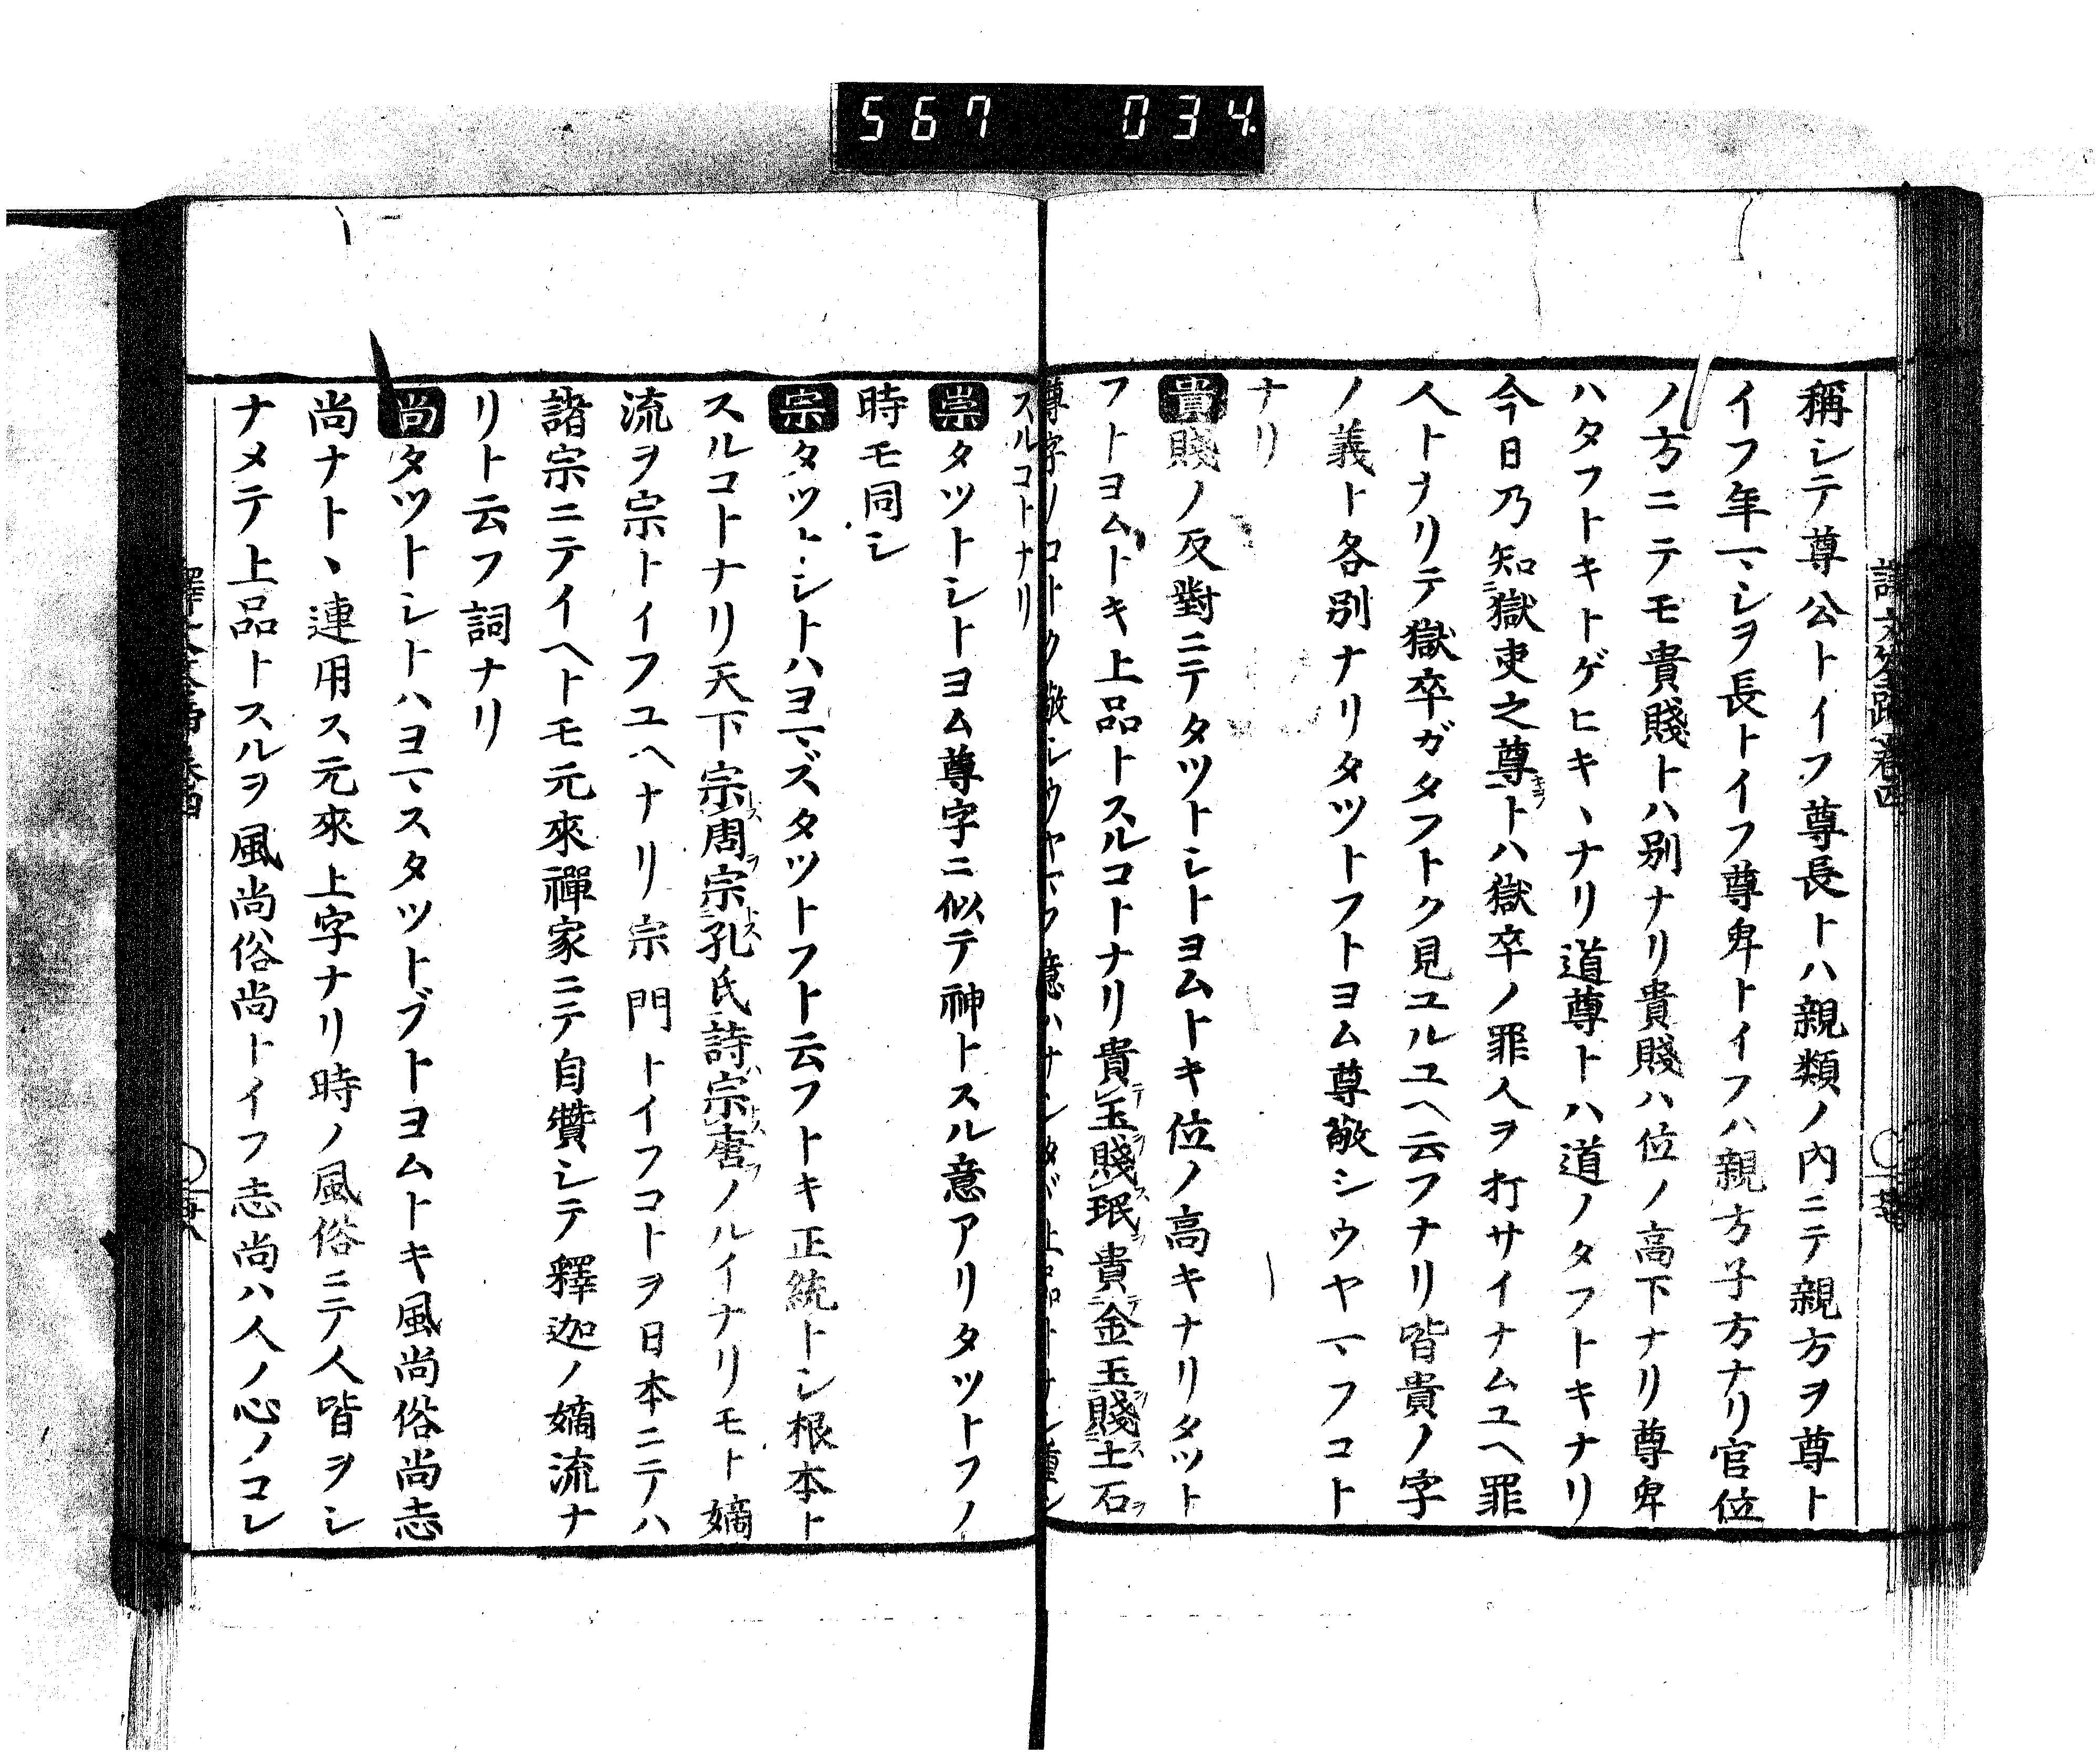 567 034
稱シテ尊公トイフ尊長トハ親類ノ内ニテ親方ヲ尊ト
イフ年マシヲ長トイフ尊卑トイフハ親方子方ナリ官位
ノ方ニテモ貴賤トハ別ナリ貴賤ハ位ノ高下ナリ尊卑
ハタフトキトゲヒキヽナリ道尊トハ道ノタフトキナリ
今日乃知獄吏之尊トハ獄卒ノ罪人ヲ打サイナムユヘ罪
人トナリテ獄卒ガタフトク見ユルユヘ云フナリ皆貴ノ字
ノ義ト各別ナリタツトフトヨム尊敬シウヤマフコト
ナリ
貴賤ノ反對ニテタツトシトヨムトキ位ノ高キナリタツト
フトヨムトキ上品トスルコトナリ貴玉賤珉貴金玉賤土石
尊字ノコトク敬シウヤマフ意ハナシタヾ上品トナシ重シ
スルコトナリ
崇タツトシトヨム尊字ニ似テ神トスル意アリタツトフノ
時モ同シ
宗タツトシトハヨマズタツトフト云フトキ正統トシ根本ト
スルコトナリ天下宗周宗孔氏詩宗唐ノルイナリモト嫡
流ヲ宗トイフユヘナリ宗門トイフコトヲ日本ニテハ
諸宗ニテイヘトモ元來禪家ニテ自贊シテ釋迦ノ嫡流ナ
リト云フ詞ナリ
尚タツトシトハヨマスタツトブトヨムトキ風尚俗尚志
尚ナトヽ連用ス元來上字ナリ時ノ風俗ニテ人皆ヲシ
ナメテ上品トスルヲ風尚俗尚トイフ志尚ハ人ノ心ノコレ